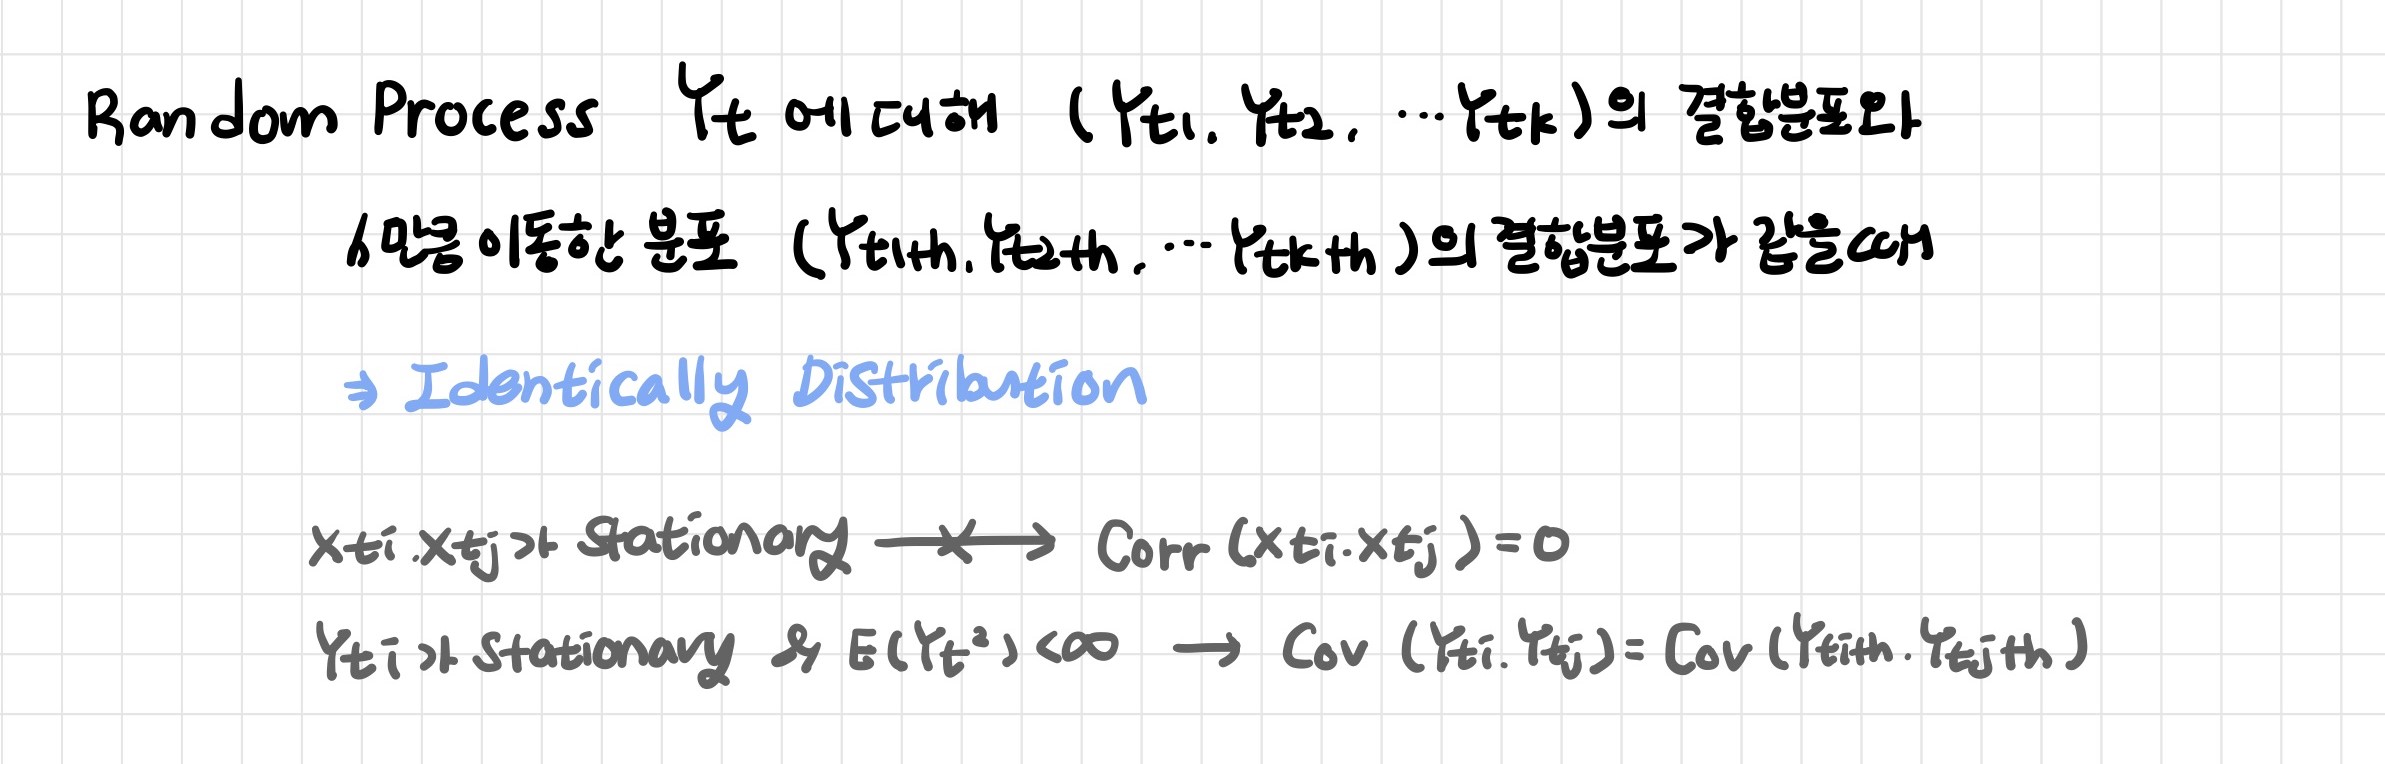 Random Process Yt 에 대해 (Yt1. Yt2, ...Ytk)의 결합분포와
h만큼 이동한 분포 (Yt1+h, Yt2+h, ... Ytk+h)의 결합분포가 같을 때
⇒ Identically Distribution
Xti.Xtj가 Stationary -X-> Corr (Xti.Xtj)=0
Yti가 Stationary & E(Yt²)<∞ → Cov (Yti.Ytj)= Cov (Yti+h.Ytj+h)